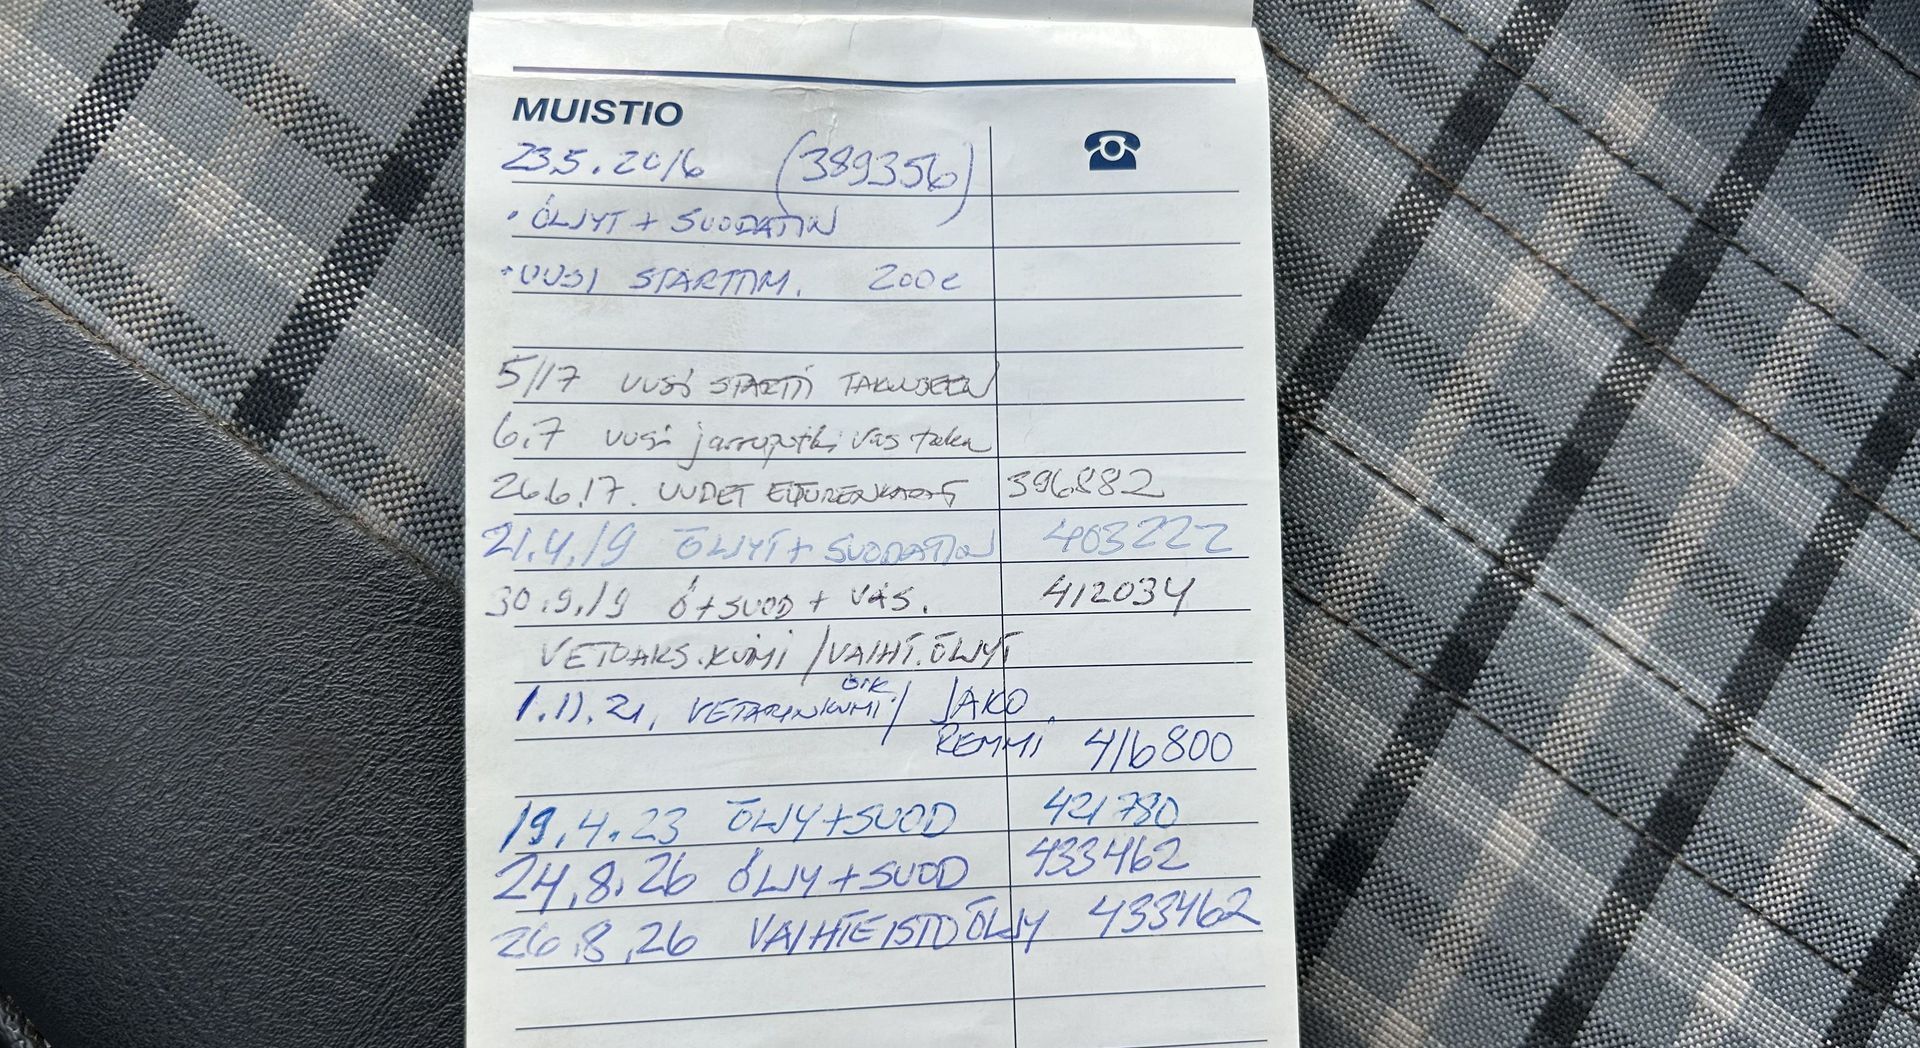 MUISTIO
23.5.2016 (389356)
• ÖLJYT + SUODATIN
• UUSI STARTTIM. 200e
5/17 UUSI STARTTI TAKUUSEEN
6.7 uusi jarruputki vas taka
26.6.17. UUDET ETURENKAAT 396882
21.4.19 ÖLJYT + SUODATIN 403222
30.9.19 Ö+SUOD + VAS. 412034
VETOAKS.KUMI / VAIHT.ÖLJYT
1.11.21. OIK / JAKO
REMMI 416800
19.4.23 ÖLJY+SUOD 421780
24.8.26 ÖLJY+SUOD 433462
26.8.26 VAIHTEISTOÖLJY 433462